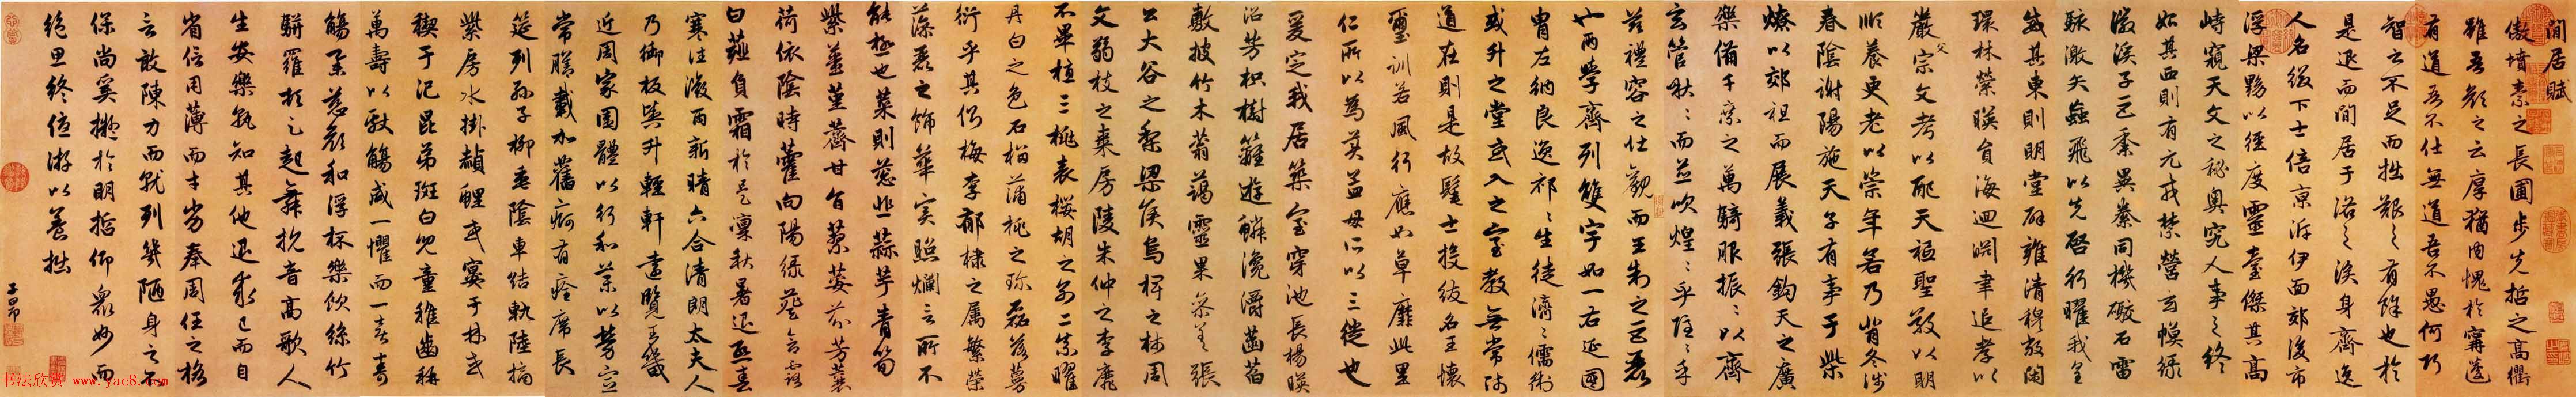 閒居賦
傲墳素之長圃步先哲之高衢
雖吾顏之云厚猶內愧於甯蘧
有道吾不仕無道吾不愚何巧
智之不足而拙艱之有餘也於
是退而閒居于洛之涘身齊逸
人名綴下士倍京泝伊面郊後市
浮梁黝以徑度靈臺傑其高
峙窺天文之秘奧究人事之終
始其西則有元戎禁營玄幙綠
徽溪子巨黍異絭同機礮石雷
駭激矢蝱飛以先啓行曜我皇
威其東則明堂辟雍清穆敞閑
環林縈映圓海迴淵聿追孝以
嚴父宗文考以配天祗聖敬以明
順養更老以崇年若乃背冬涉
春陰謝陽施天子有事于柴
燎以郊祖而展義張鈞天之廣
樂備千乘之萬騎服振振以齊
玄管啾啾而並吹煌煌乎隱隱乎
茲禮容之壯觀而王制之巨麗
也兩學齊列雙宇如一右延國
胄左納良逸祁祁生徒濟濟儒術
或升之堂或入之室教無常師
道在則是故髦士投紱名王懷
璽訓若風行應如草靡此里
仁所以為美孟母所以三徙也
爰定我居築室穿池長楊映
沼芳枳樹籬遊鱗瀺灂菡萏
敷披竹木蓊藹靈果參差張
公大谷之梨梁侯烏椑之柿周
文弱枝之棗房陵朱仲之李靡
不畢植三桃表櫻胡之別二柰曜
丹白之色石榴蒲桃之珍磊落蔓
衍乎其側梅李郁棣之屬繁榮
藻麗之飾華實照爛言所不
能極也菜則葱韭蒜芋青筍
紫薑堇薺甘旨蓼荽芬芳蘘
荷依陰時藿向陽綠葵含露
白薤負霜於是凜秋暑退熙春
寒往微雨新晴六合清朗太夫人
乃御板輿升輕軒遠覽王畿
近周家園體以行和藥以勞宣
常膳載加舊痾有痊席長
筵列孫子柳垂陰車結軌陸摘
紫房水掛赬鯉或宴于林或
禊于汜昆弟斑白兒童稚齒稱
萬壽以獻觴咸一懼而一喜壽
觴舉慈顏和浮杯樂飲絲竹
駢羅頓足起舞抗音高歌人
生安樂孰知其他退求己而自
省信用薄而才劣奉周任之格
言敢陳力而就列幾陋身之不
保尚奚擬於明哲仰衆妙而
絕思終優游以養拙
子昂
书法欣赏 www.yac8.com